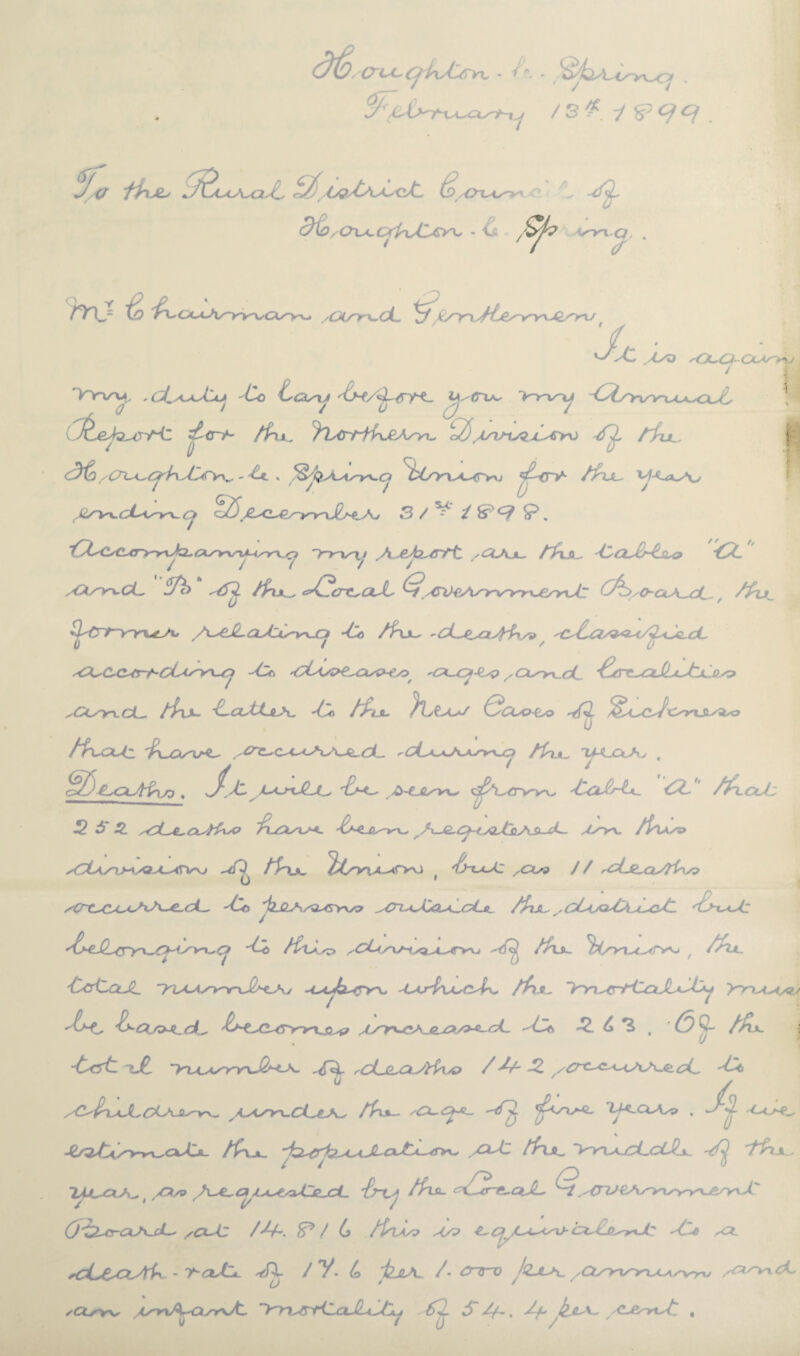 Houghton - le - Spring.
February 13th. 1899.
To the Rural District Council of
Houghton - le - Spring.
Mr Chairman and Gentlemen,
It is again
my duty to lay before you my Annual
Report for the Northern Division of the
Houghton - le. Spring Union for the year
ending December 31st 1898.
Accompanying my report are the tables "A"
and "B" of the Local Government Board, the
former relating to the deaths, classified
according to diseases, ages, and localities
and the latter to the New Cases of Sickness
that have occurred during the year.
Deaths. It will be seen from table "A" that
252 deaths have been registered in this
division of the Union, but as 11 deaths
occurred to persons outside the district but
belonging to this division of the Union, the
total number upon which the mortality must
be based becomes increased to 263. Of the
total number of deaths 142 occurred to
children under the age of five years. If we
estimate the population at the middle of the
year, as requested by the Local Government
Board at 14.816 this is equivalent to a
death-rate of 17.6 per 1.000 per annum and
an infant mortality of 54.4 per cent.